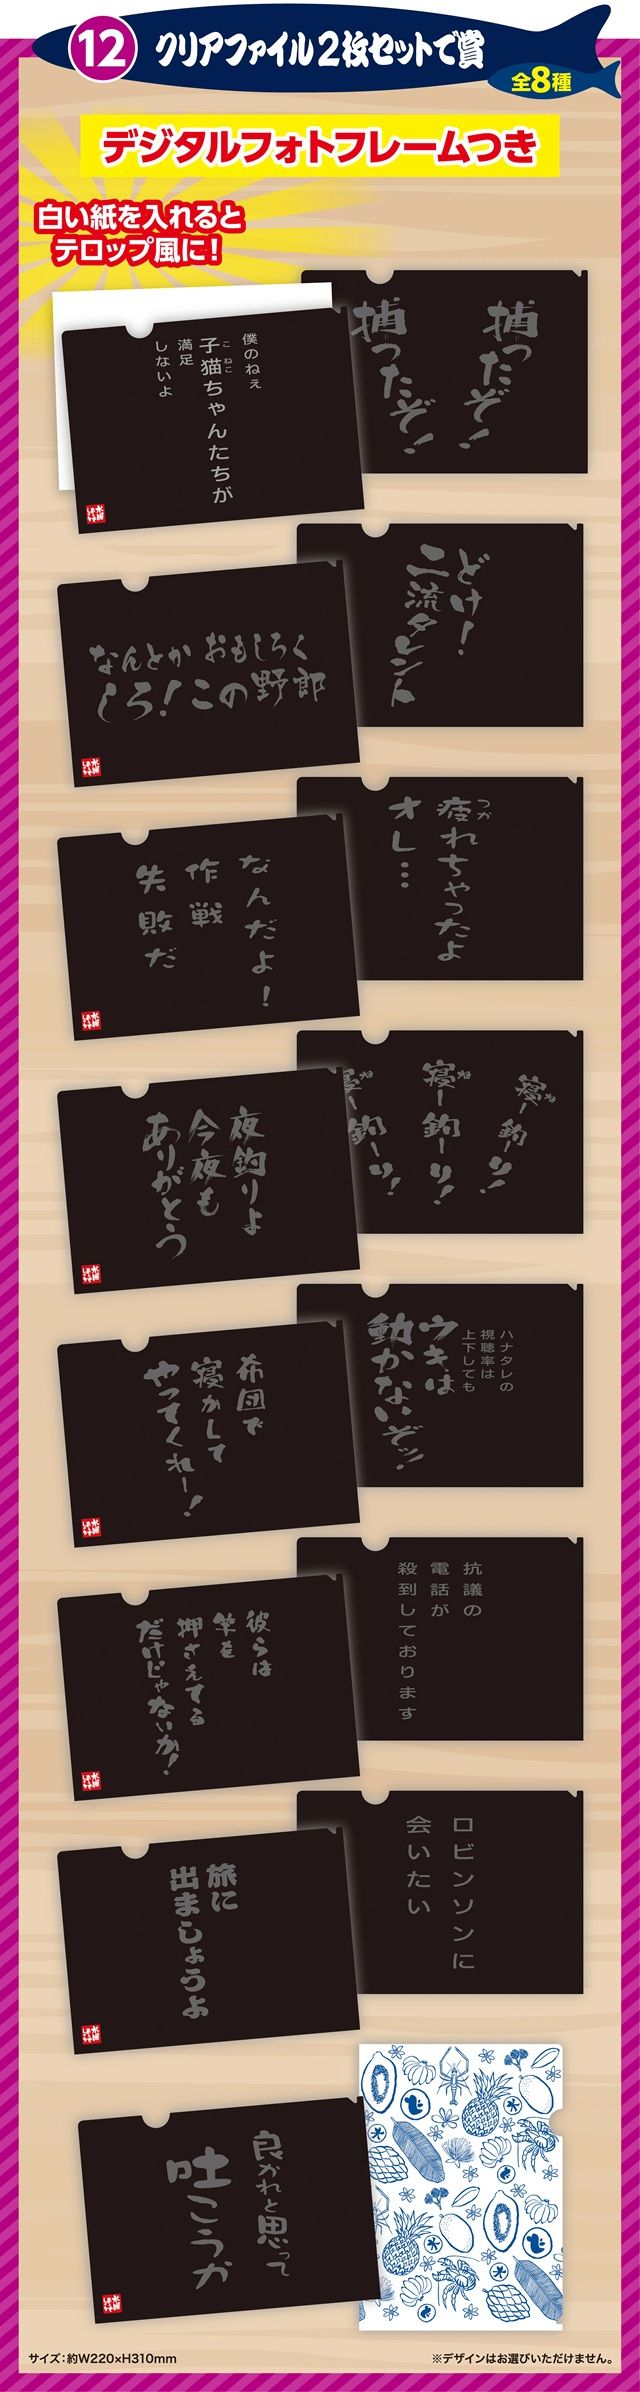 12
クリアファイル2枚セットで賞
全8種
デジタルフォトフレームつき
白い紙を入れると
テロップ風に！
僕のねぇ
子猫ちゃんたちが
こ ねこ
満足
しないよ
捕ったぞ！
捕ったぞ！
なんとか おもしろく
しろ！この野郎
どけ！
二流タレント
なんだよ！
作戦
失敗だ
疲れちゃったよ
つか
オレ…
夜釣りよ
今夜も
ありがとう
寝ー釣ーり！
ね
寝ー釣ーり！
ね
寝ー釣ーり！
ね
布団で
寝かして
やってくれー！
ハナタレの
視聴率は
上下しても
ウキは
動かないぞッ！
彼らは
竿を
押さえてる
だけじゃないか！
抗議の
電話が
殺到しております
旅に
出ましょうよ
ロビンソンに
会いたい
良かれと思って
吐こうか
サイズ：約W220×H310mm
※デザインはお選びいただけません。